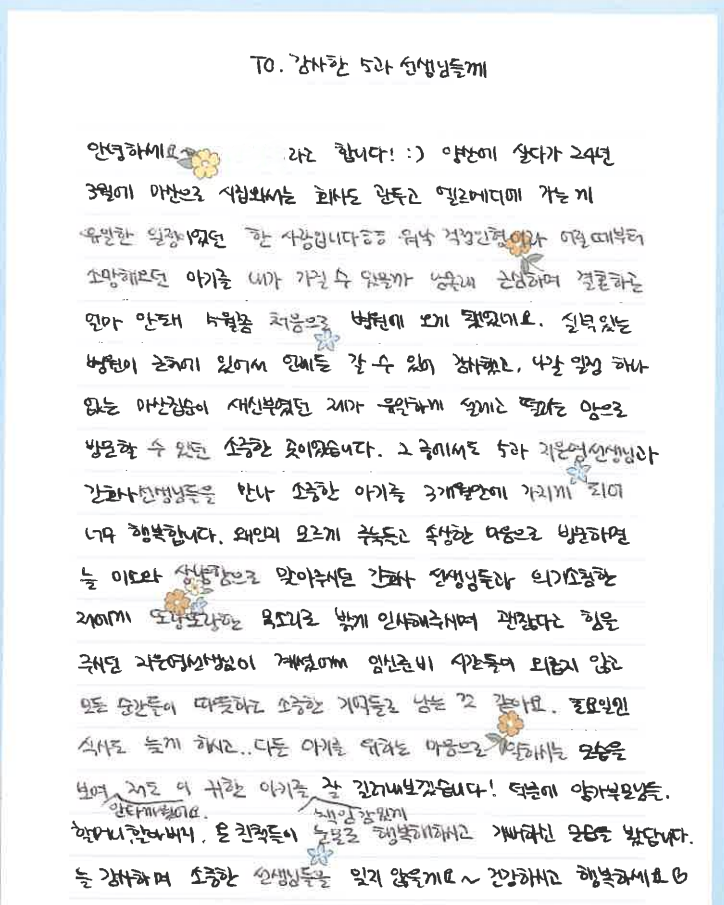 TO. 감사한 5과 선생님들께
안녕하세요 라고 합니다! :) 양산에 살다가 24년
3월에 마산으로 시집와서는 회사도 관두고 엘르메디에 가는게
유일한 일정이었던 한 사람입니다ㅎㅎ 워낙 걱정인형이라 어릴때부터
소망해오던 아기를 내가 가질 수 있을까 남몰래 근심하며 결혼하곤
얼마 안돼 5월쯤 처음으로 병원에 오게 됐었네요. 실력있는
병원이 근처에 있어서 언제든 갈 수 있어 감사했고, 나갈 일정 하나
없는 마산집순이 새신부였던 제가 유일하게 설레고 떨리는 맘으로
방문할 수 있던 소중한 곳이었습니다. 그 중에서도 5과 지은영선생님과
간호사선생님들을 만나 소중한 아기를 3개월만에 가지게 되어
너무 행복합니다. 왜인지 모르게 주눅들고 속상한 마음으로 방문하면
늘 미소와 상냥함으로 맞아주시던 간호사 선생님들과 의기소침한
저에게 또랑또랑한 목소리로 밝게 인사해주시며 괜찮다고 힘을
주시던 지은영선생님이 계셨어서 임신준비 시간들이 외롭지 않고
모든 순간들이 따뜻하고 소중한 기억들로 남는 것 같아요. 토요일엔
식사도 늦게 하시고.. 다른 아기를 위하는 마음으로 일하시는 모습을
보며 저도 이 귀한 아기를 잘 길러내보겠습니다! 덕분에 양가부모님들,
안타까웠어요. 책임감있게
할머니,할아버지, 온 친척들이 눈물로 행복해하시고 기뻐하신 모습을 봤답니다.
늘 감사하며 소중한 선생님들을 잊지 않을게요~ 건강하시고 행복하세요♡